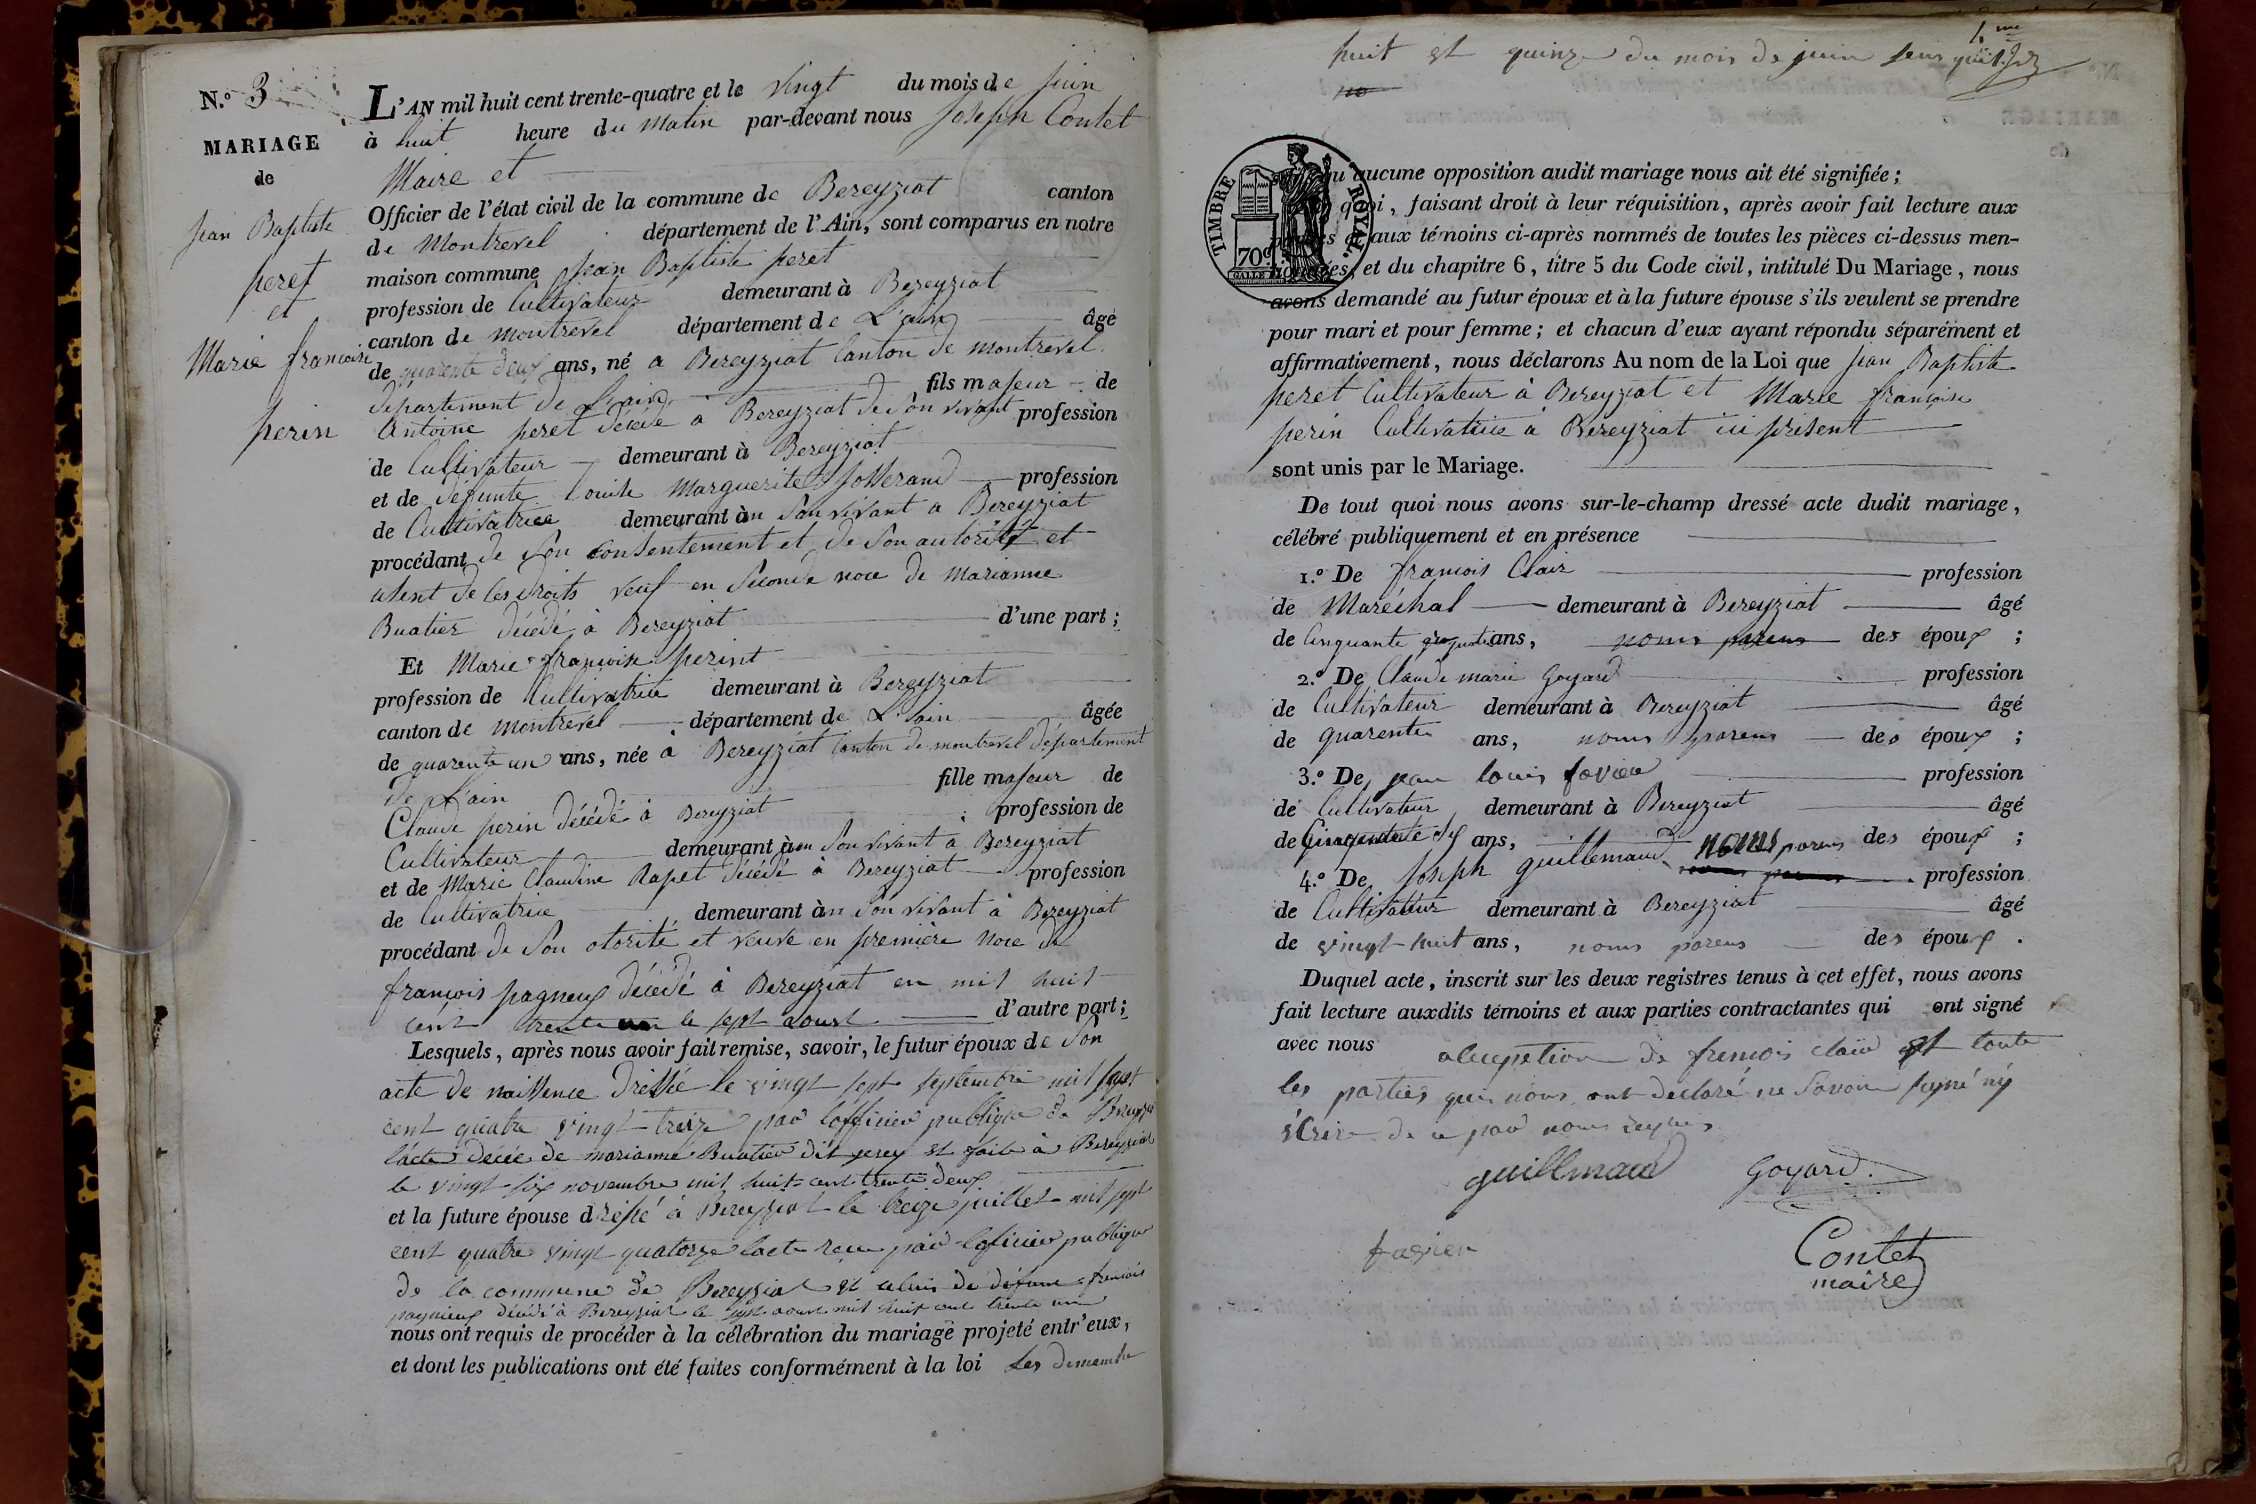 N.º 3
MARIAGE
de
Jean Baptiste
peret
et
Marie francoise
perin
L'AN mil huit cent trente-quatre et le vingt du mois de juin
à huit heure du Matin par-devant nous Joseph Contet
Maire et
Officier de l'état civil de la commune de Bereyziat canton
de Montrevel département de l'Ain, sont comparus en notre
maison commune Jean Baptiste peret
profession de Cultivateur demeurant à Bereyziat
canton de montrevel département de L'ain âgé
de quarente deux ans, né a Bereyziat Canton de montrevel
département de L'ain fils majeur de
Antoine peret décédé a Bereyziat de Son vivant profession
de Cultivateur demeurant à Bereyziat
et de défunte Louise Marguerite Josserand profession
de Cultivatrice demeurant àn Son vivant a Bereyziat
procédant de Son Consentement et de Son autorité et
usent de ses droits veuf en Seconde noce de Marianne
Buatier décédé à Bereyziat d'une part ;
Et Marie francoise perint
profession de Cultivatrice demeurant à Bereyziat
canton de montrevel département de L'ain âgée
de quarente un ans, née à Bereyziat Canton de montrevel département
de L'ain fille majeur de
Claude perin décédé à Bereyziat ; profession de
Cultivateur demeurant àen Son vivant a Bereyziat
et de Marie Claudine Rapet décédé à Bereyziat profession
de Cultivatrice demeurant àn Son vivant à Bereyziat
procédant de Son otorité et veuve en première noce de
francois pagneux décédé à Bereyziat en mil huit
cent trente un le sept aoust d'autre part ;
Lesquels, après nous avoir fait remise, savoir, le futur époux de Son
acte de naissence dressée le vingt sept septembre mil sept
cent quatre vingt-treize par lofficier publique de Bereyzia
lacte decée de marianne Buatier dit et faite à Bereyziat
le vingt-six novembre mil huit cent trente deux
et la future épouse dressé à Bereyziat le treize juillet mil sept
cent quatre vingt quatorze lacte recu par loficier publique
de la commune de Bereyziat et celuis de defunt francois
pagneux décédé à Bereyziat le sept aoust mil huit cent trente un
nous ont requis de procéder à la célébration du mariage projeté entr'eux,
et dont les publications ont été faites conformément à la loi les dimenche
huit et quinze du mois de juin sens
qu'aucune opposition audit mariage nous ait été signifiée ;
quoi, faisant droit à leur réquisition, après avoir fait lecture aux
parties et aux témoins ci-après nommés de toutes les pièces ci-dessus men-
tionnées, et du chapitre 6, titre 5 du Code civil, intitulé Du Mariage, nous
avons demandé au futur époux et à la future épouse s'ils veulent se prendre
pour mari et pour femme ; et chacun d'eux ayant répondu séparément et
affirmativement, nous déclarons Au nom de la Loi que Jean Baptiste
peret Cultivateur à Bereyziat et Marie francoise
perin Cultivatrice à Bereyziat ici présent
sont unis par le Mariage.
De tout quoi nous avons sur-le-champ dressé acte dudit mariage,
célébré publiquement et en présence
1.º De francois Clair profession
de Maréchal demeurant à Bereyziat âgé
de Cinquante ans, nomis parens des époux ;
2.º De Claude marie Goyard profession
de Cultivateur demeurant à Bereyziat âgé
de quarente ans, nomis parens des époux ;
3.º De jean louis favier profession
de Cultivateur demeurant à Bereyziat âgé
de ans, nomis parens des époux ;
4.º De Joseph guillemaud profession
de Cultivateur demeurant à Bereyziat âgé
de vingt-huit ans, nomis parens des époux .
Duquel acte, inscrit sur les deux registres tenus à cet effet, nous avons
fait lecture auxdits témoins et aux parties contractantes qui ont signé
avec nous alexpetion de francois clair et toute
les parties qui nous ont declaré ne Savoir signé ny
éCrire de ce par nous requis
guillmaud Goyard.
favier
Contet
maire
TIMBRE ROYAL.
70c